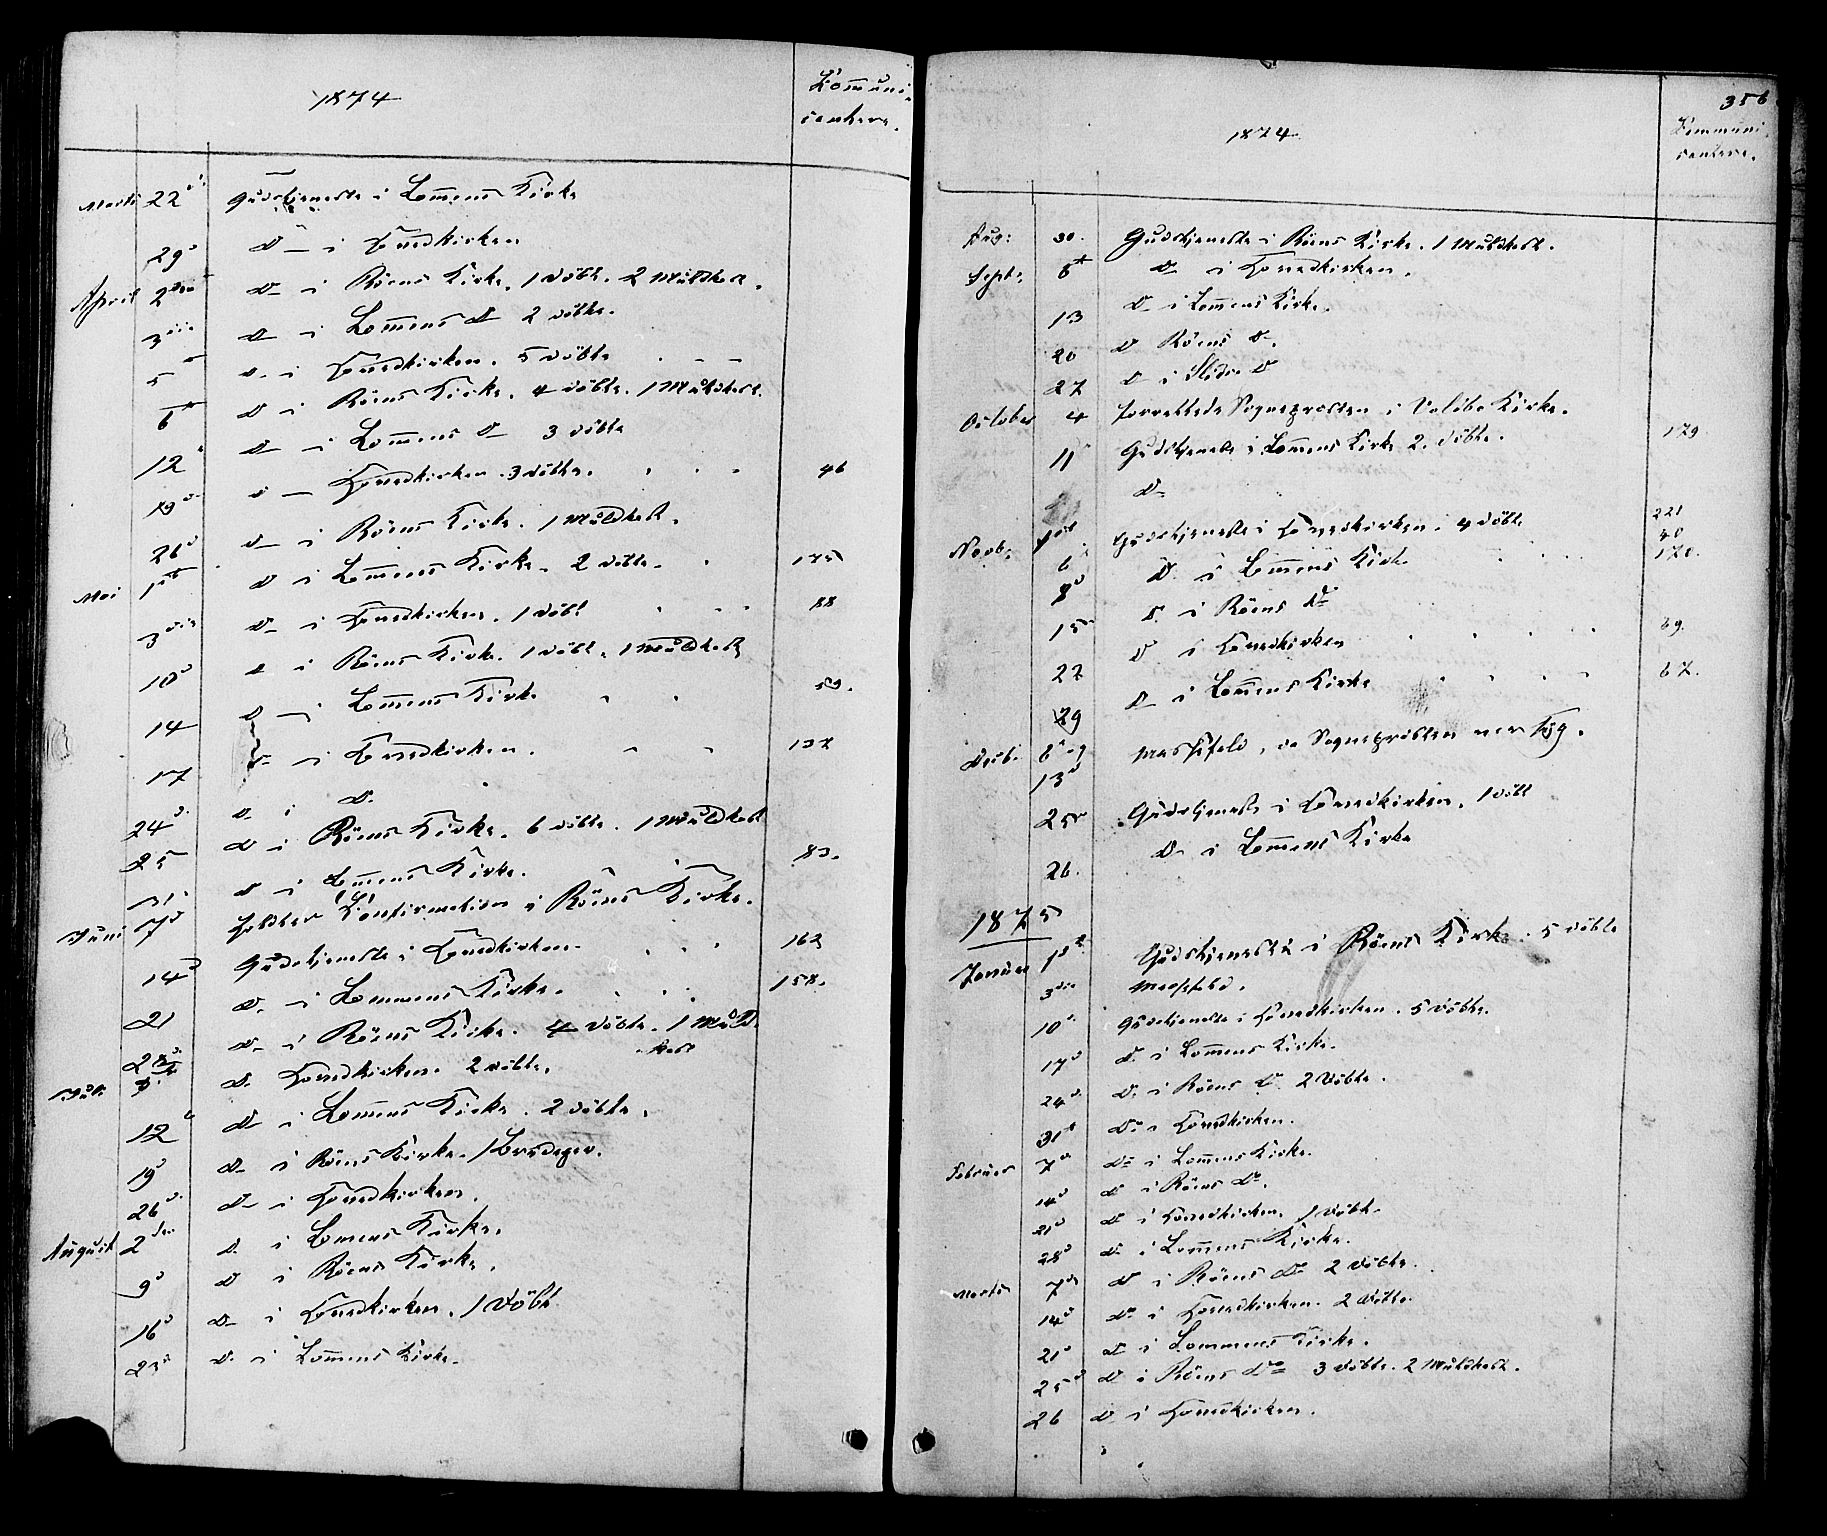 1874
Kommuni-
cantere.
Marts 22de Gudstjeneste i Lomens Kirke
29de Do i Hovedkirken
April 2den Do i Röens Kirke. 1 döbt. 2 Muldkast.
3die Do i Lomens Do 2 döbte.
5te Do i Hovedkirken. 5 döbte
6te Do i Röens Kirke. 4 döbte. 1 Muldkast.
12te Do i Lomens Do 3 döbte
19de Do Hovedkirken. 3 döbte. 46
26de Do i Röens Kirke. 1 Muldkast.
Mai 1ste Do i Lomens Kirke. 2 döbte. 175
3die Do i Hovedkirken. 1 döbt 88
10de Do i Röens Kirke. 1 döbt. 1 Muldkast
14 Do i Lomens Kirke 59.
17 Do i Hovedkirken. 137
24de Do i Do
25 Do i Röens Kirke. 6 döbte. 1 Muldkast
31 Do i Lomens Kirke. 83.
Juni 7de holdtes Konfirmation i Röens Kirke.
14de Gudstjeneste i Hovedkirken. 162
21 Do i Lommens Kirke. 158.
28de Do i Röens Kirke. 4 döbte. 1 Muld-
kast
Juli 5te Do Hovedkirken. 2 döbte.
12te Do i Lomens Kirke. 2 döbte.
19de Do i Röens Kirke. 1
26de Do i Hovedkirken.
August 2den Do i Lomens Kirke.
9de Do i Röens Kirke.
16de Do i Hovedkirken. 1 döbt
23de Do i Lomens Kirke.
356
1874.
Kommuni-
cantere.
Aug: 30. Gudstjeneste i Röens Kirke. 1 Muldkast.
Sept: 6te Do i Hovedkirken.
13 Do i Lomens Kirke.
20 Do Röens Do.
27 Do i Slidre Do
October 4 forrettede Sogneprosten i Volbo Kirke.
11te Gudstjeneste i Lomens Kirke 2. döbte. 179.
Do
Novb: 1ste Gudstjeneste i Hovedkirken. 4 döbte 221
6 Do i Lomens Kirke 40
8de Do i Röens Do 120.
15 Do i Hovedkirken 69.
22 Do i Lomens Kirke 67.
29
Decb: 6te og Messefald, da Sogneprosten var syg.
13de
25 Gudstjeneste i Hovedkirken. 1 döbt
26. Do i Lomens Kirke
1875
Januar 1ste Gudstjeneste i Röens Kirke. 5 döbte
3die Messefald.
10de Gudstjeneste i Hovedkirken. 5 döbte.
17de Do i Lommens Kirke.
24de Do i Röens Do. 2 döbte.
31te Do i Hovedkirken.
Februar 7de Do i Lomens Kirke.
14de Do i Röens Do.
21de Do i Hovedkirken. 1 döbt.
28de Do i Lomens Kirke.
Marts 7de Do i Röens Do 2 döbte.
14de Do i Hovedkirken. 2 döbte.
21de Do i Lommens Kirke.
25de Do i Röens Do 3 döbte. 2 Muldkast.
26 Do i Hovedkirken.